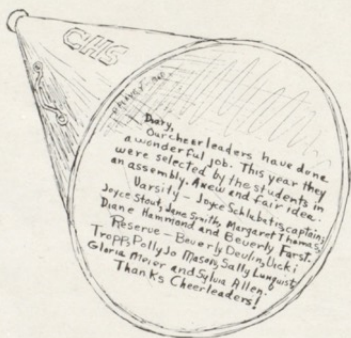 CHS
Diary,
Our cheerleaders have done
a wonderful job. This year they
were selected by the students in
an assembly. A new and fair idea.
Varsity - Joyce Schlabatis, captain;
Joyce Stout, Jane Smith, Margaret Thomas,
Diane Hammond and Beverly Farst.
Reserve - Beverly Devlin, Vecki
Tropp, Polly Jo Mason, Sally Lunquist,
Gloria Meier and Sylvia Allen.
Thanks Cheerleaders!